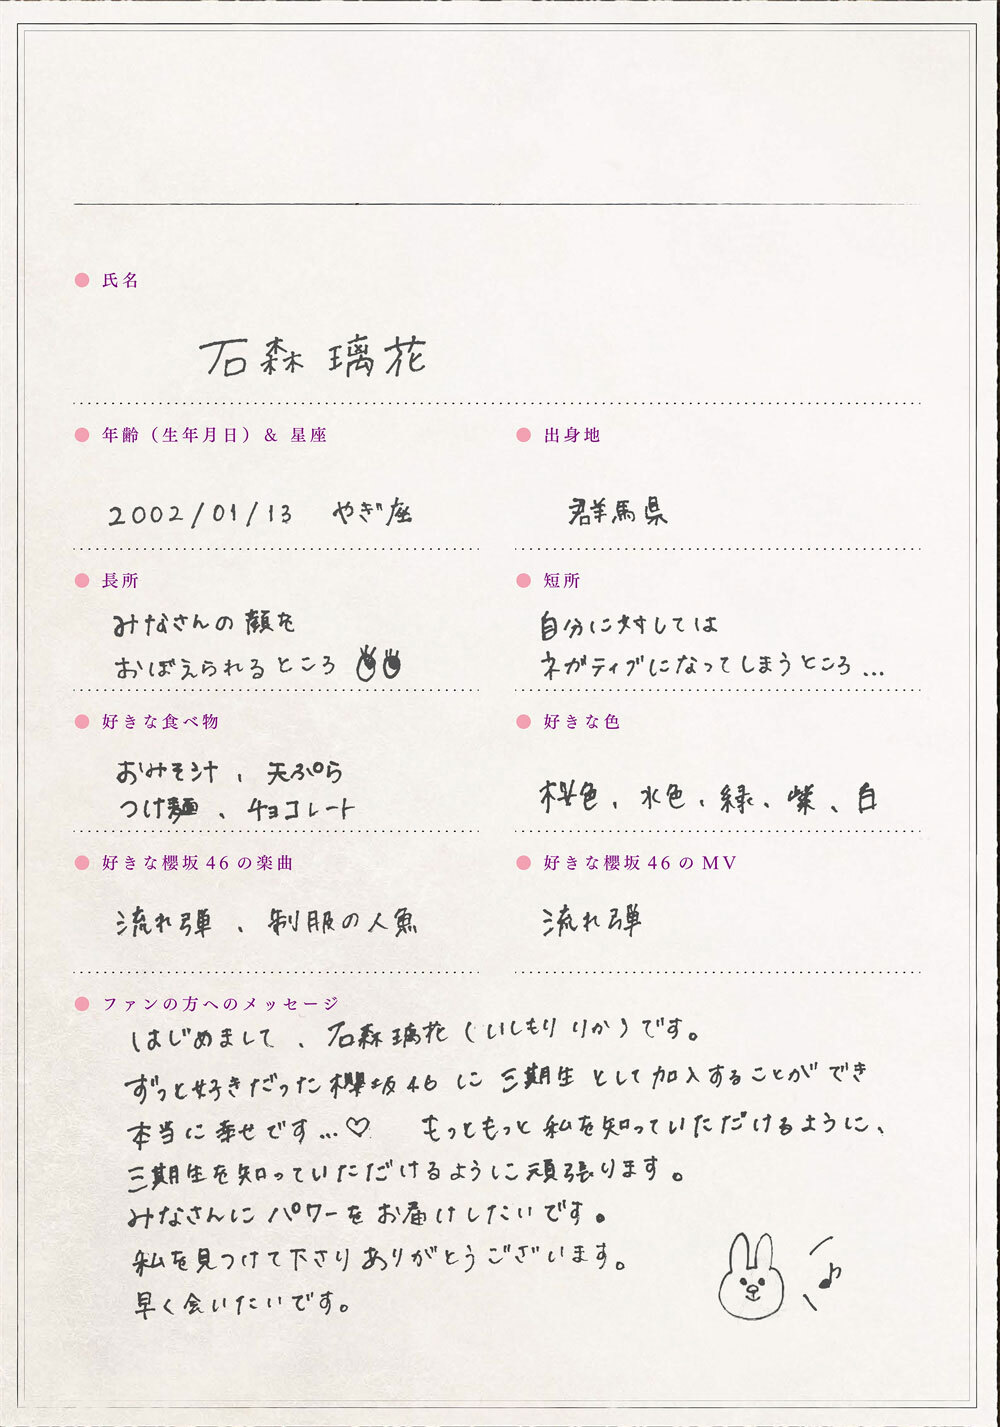 氏名
石森 璃花
年齢（生年月日）& 星座
2002/01/13 やぎ座
出身地
群馬県
長所
みなさんの顔を
おぼえられるところ
短所
自分に対しては
ネガティブになってしまうところ...
好きな食べ物
おみそ汁、天ぷら
つけ麺、チョコレート
好きな色
桜色、水色、緑、紫、白
好きな櫻坂46の楽曲
流れ弾、制服の人魚
好きな櫻坂46のMV
流れ弾
ファンの方へのメッセージ
はじめまして、石森璃花(いしもり りか)です。
ずっと好きだった櫻坂46に三期生として加入することができ
本当に幸せです...♡ もっともっと私を知っていただけるように、
三期生を知っていただけるように頑張ります。
みなさんにパワーをお届けしたいです。
私を見つけて下さりありがとうございます。
早く会いたいです。